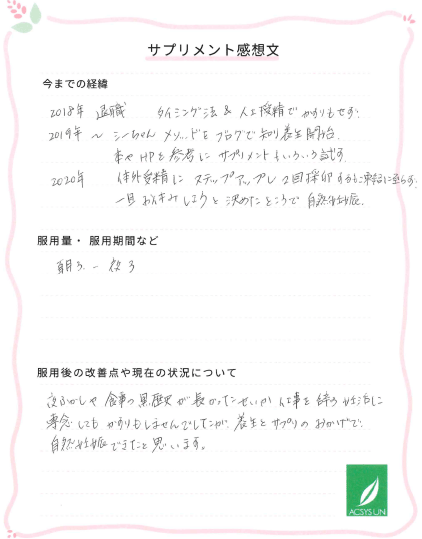 サプリメント感想文
今までの経緯
2018年 退職 タイミング法 & 人工授精でかすりもせず。
2019年 〜 シーちゃん メソッドをブログで知り養生開始。
本やHPを参考に サプリメントもいろいろ試す。
2020年 体外受精に ステップアップし 2回採卵するも凍結に至らず。
一旦 お休みしようと決めたところで自然妊娠。
服用量・服用期間など
朝3 - 夜3
服用後の改善点や現在の状況について
夜ふかしや 食事の黒歴史が長かったせいか 仕事を辞め 妊活に
専念しても かすりもしませんでしたが、養生とサプリのおかげで、
自然妊娠できたと思います。
ACSYS UN